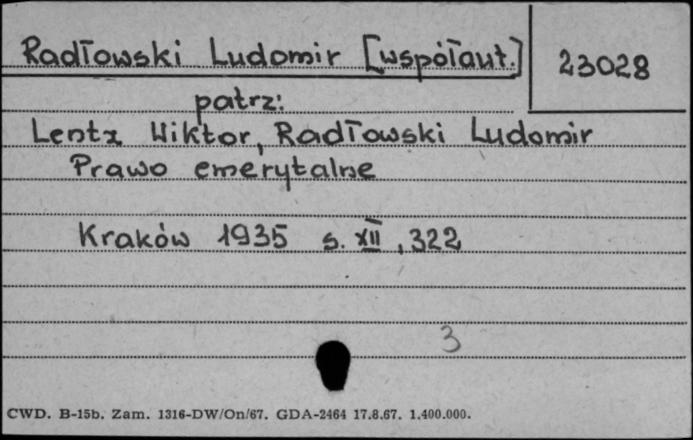 Radłowski Ludomir [współaut.]
23028
patrz:
Lentz Wiktor, Radłowski Ludomir
Prawo emerytalne
Kraków 1935 s. XII, 322
3
CWD. B-15b. Zam. 1316-DW/On/67. GDA-2464 17.8.67. 1.400.000.